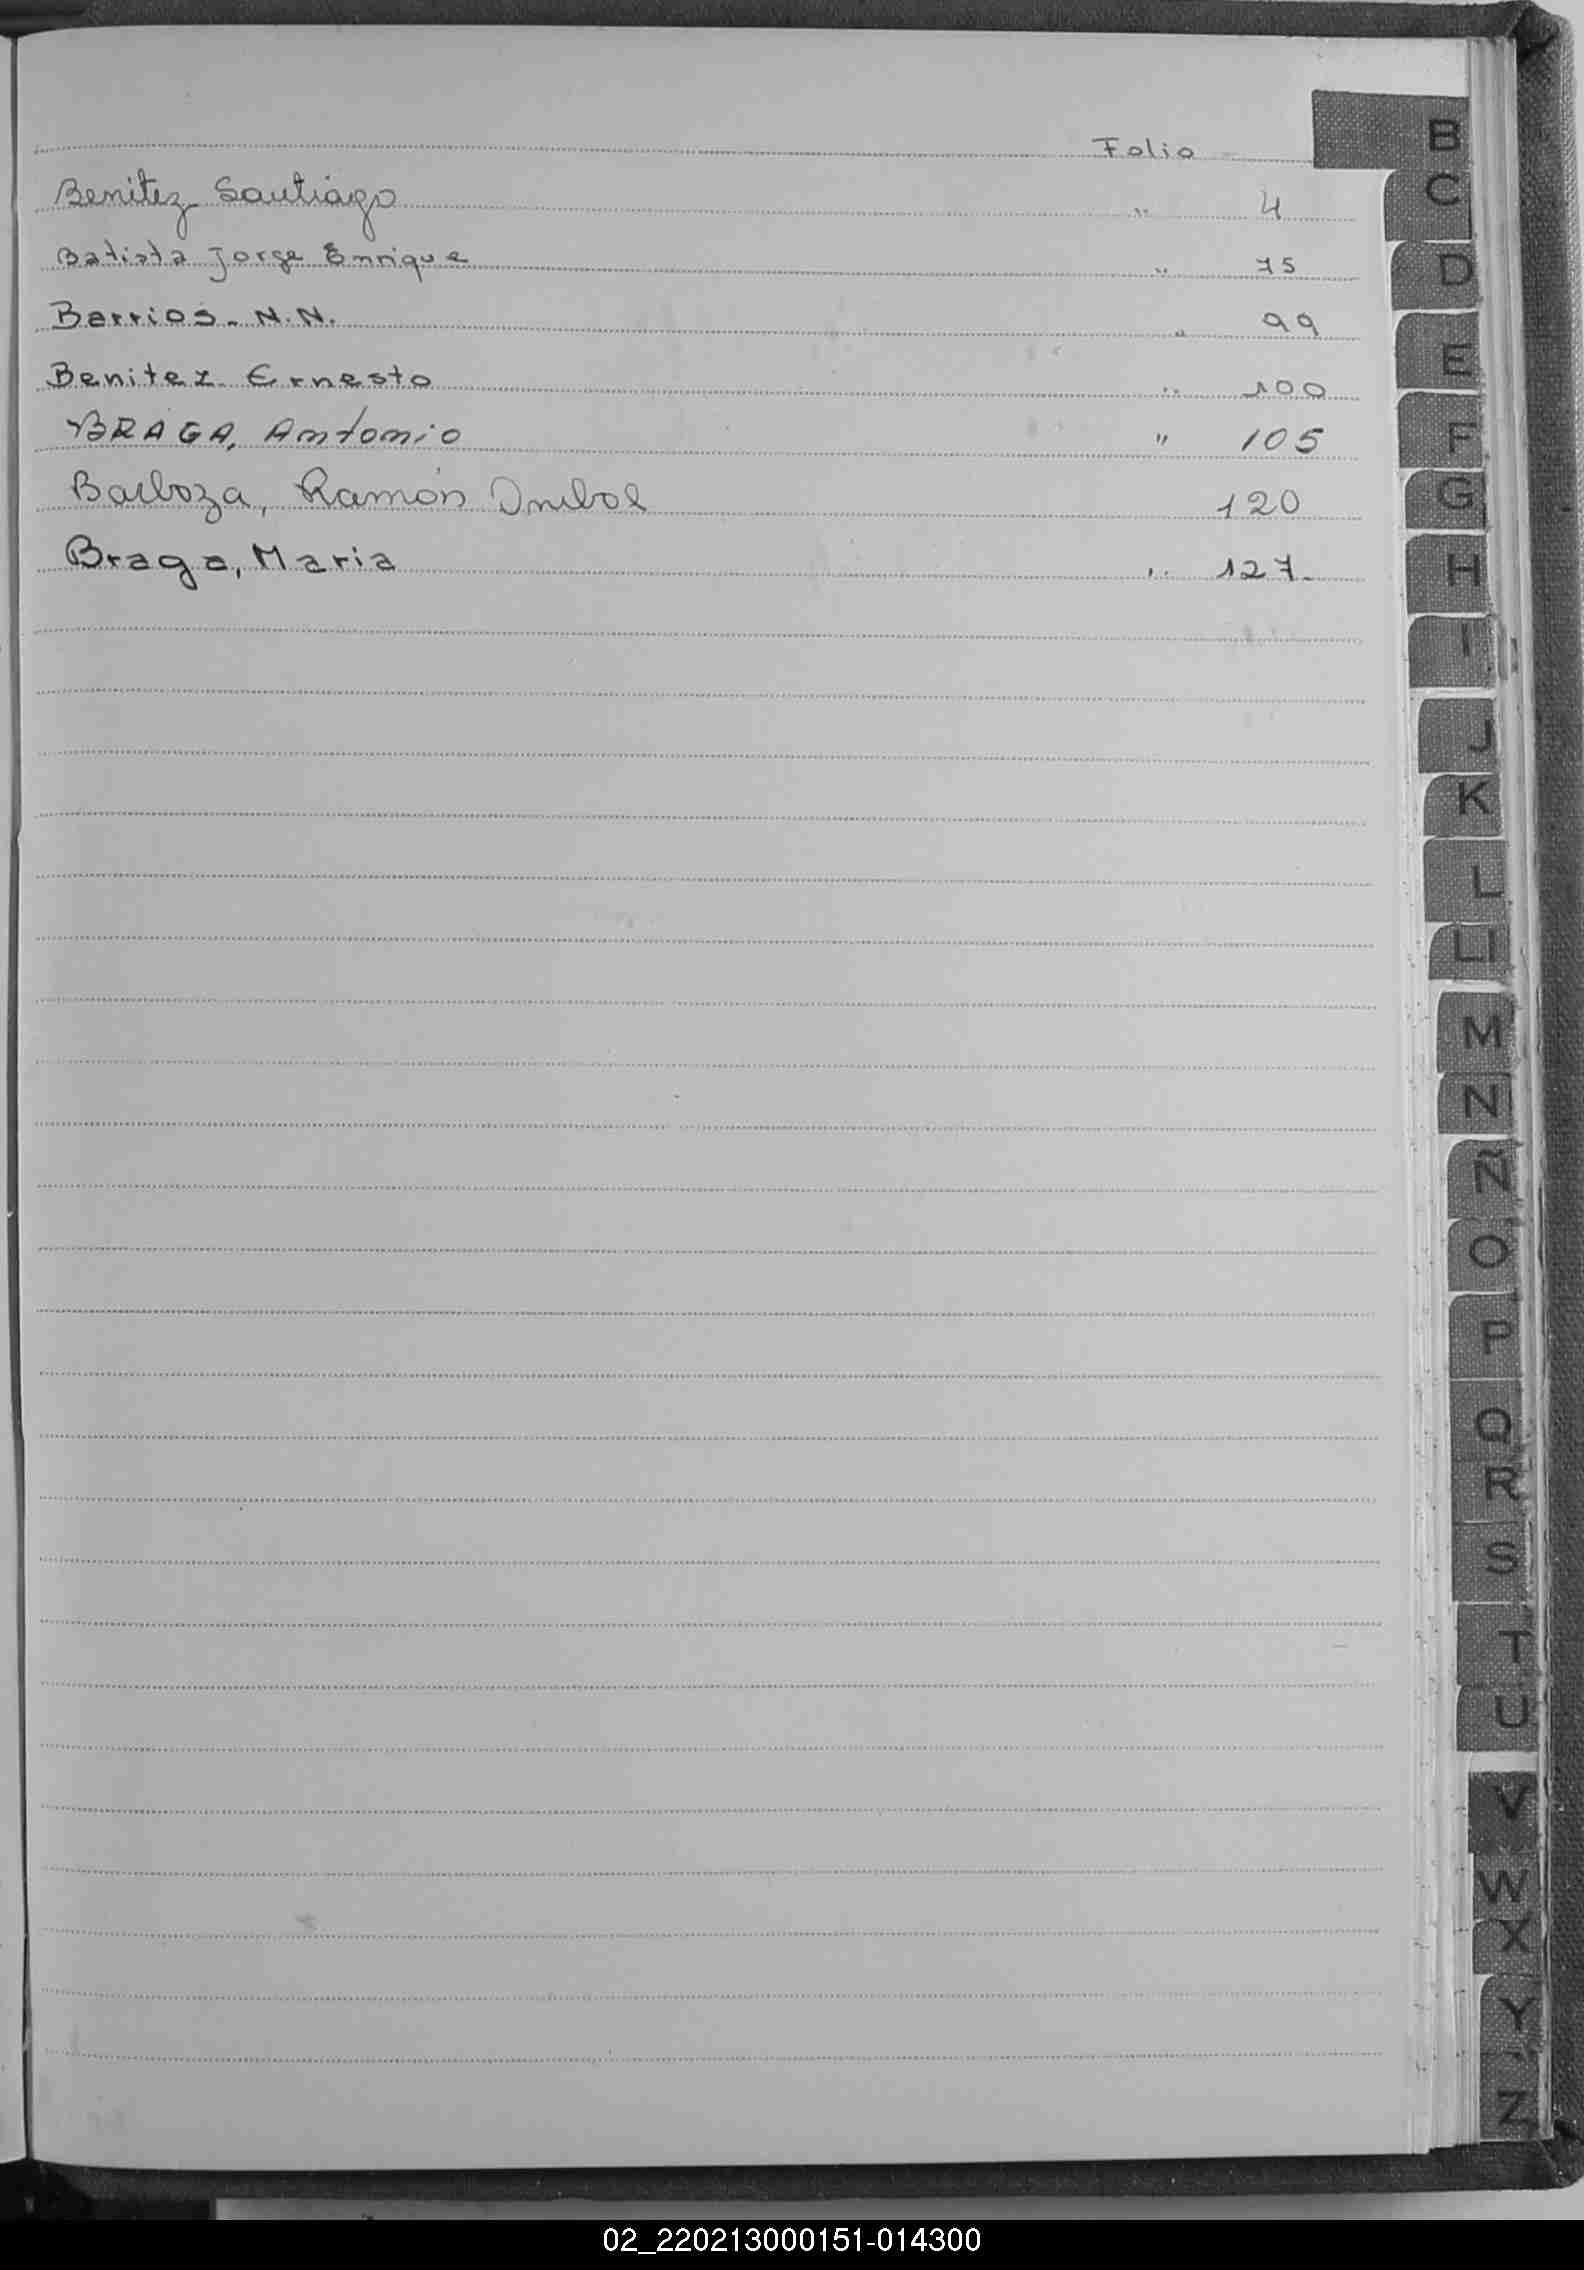 Folio
Benitez Santiago " 4
Batista Jorge Enrique " 75
Barrios. N.N. " 99
Benitez Ernesto " 100
BRAGA, Antonio " 105
Barboza, Ramón 120
Braga, Maria " 127.
B
C
D
E
F
G
H
I
J
K
L
Ll
M
N
Ñ
O
P
Q
R
S
T
U
V
W
X
Y
Z
02_220213000151-014300